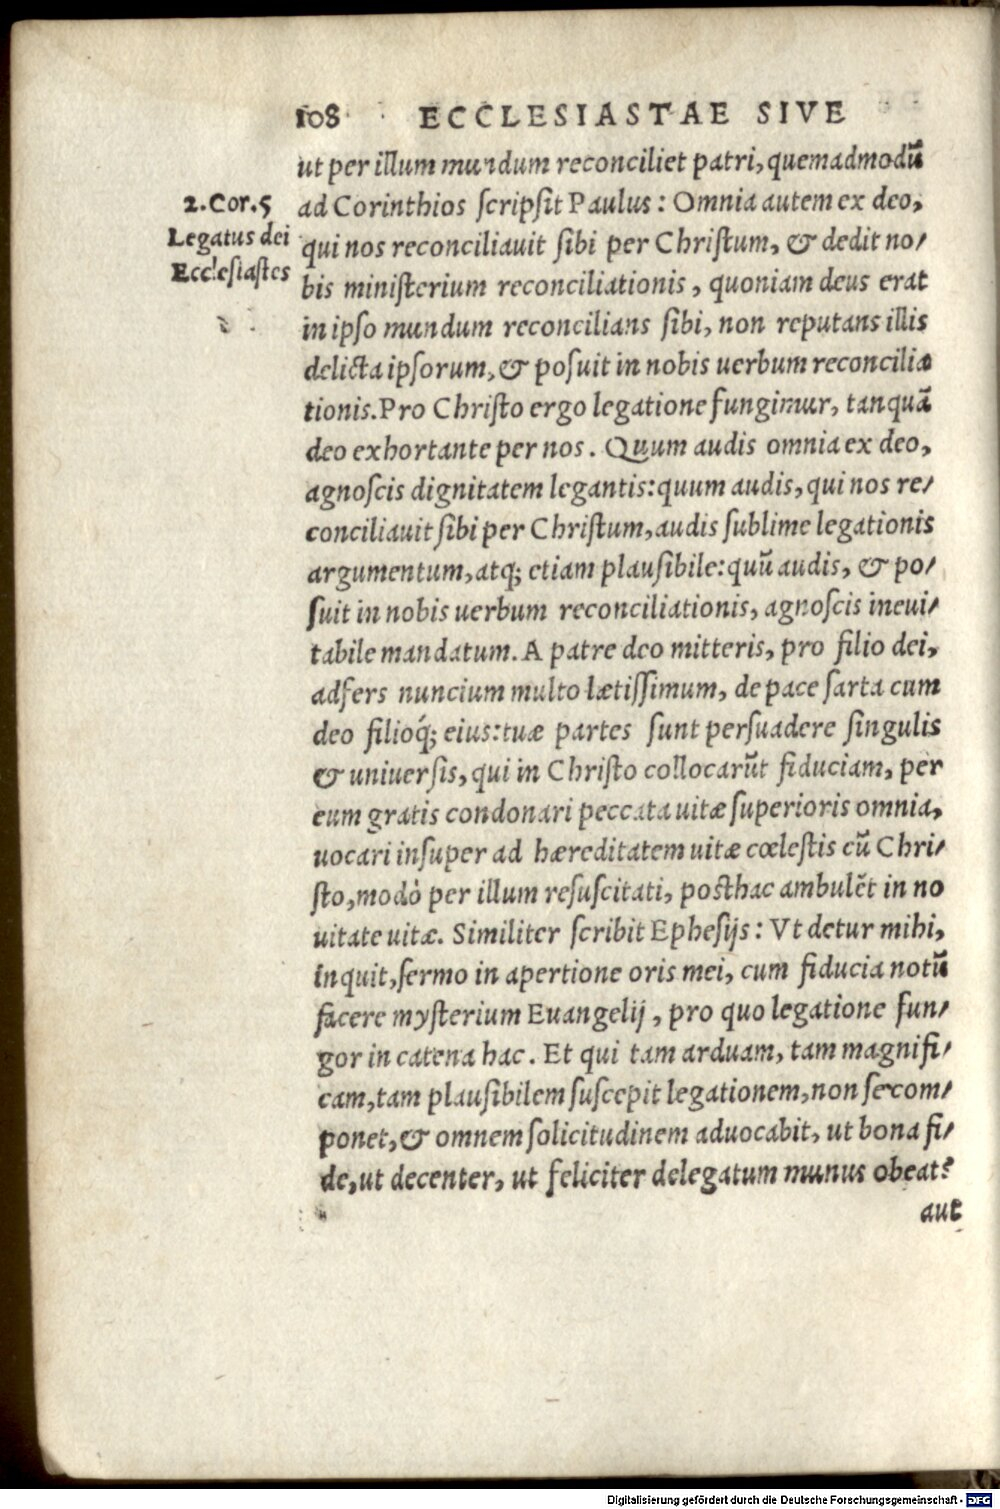 108 ECCLESIASTAE SIVE
ut per illum mundum reconciliet patri, quemadmodū
2. Cor. 5
ad Corinthios scripsit Paulus: Omnia autem ex deo,
Legatus dei
qui nos reconciliauit sibi per Christum, & dedit no/
Ecclesiastes
bis ministerium reconciliationis, quoniam deus erat
in ipso mundum reconcilians sibi, non reputans illis
delicta ipsorum, & posuit in nobis uerbum reconcilia
tionis. Pro Christo ergo legatione fungimur, tanquā
deo exhortante per nos. Quum audis omnia ex deo,
agnoscis dignitatem legantis: quum audis, qui nos re/
conciliauit sibi per Christum, audis sublime legationis
argumentum, atq; etiam plausibile: quū audis, & po/
suit in nobis uerbum reconciliationis, agnoscis ineui/
tabile mandatum. A patre deo mitteris, pro filio dei,
adfers nuncium multo lætissimum, de pace sarta cum
deo filioq́; eius: tuæ partes sunt persuadere singulis
& uniuersis, qui in Christo collocarūt fiduciam, per
eum gratis condonari peccata uitæ superioris omnia,
uocari insuper ad hæreditatem uitæ cœlestis cū Chri/
sto, modò per illum resuscitati, posthac ambulēt in no
uitate uitæ. Similiter scribit Ephesijs: Vt detur mihi,
inquit, sermo in apertione oris mei, cum fiducia notū
facere mysterium Euangelij, pro quo legatione fun/
gor in catena hac. Et qui tam arduam, tam magnifi/
cam, tam plausibilem suscepit legationem, non se com/
ponet, & omnem solicitudinem aduocabit, ut bona fi/
de, ut decenter, ut feliciter delegatum munus obeat?
aut
Digitalisierung gefördert durch die Deutsche Forschungsgemeinschaft - DFG